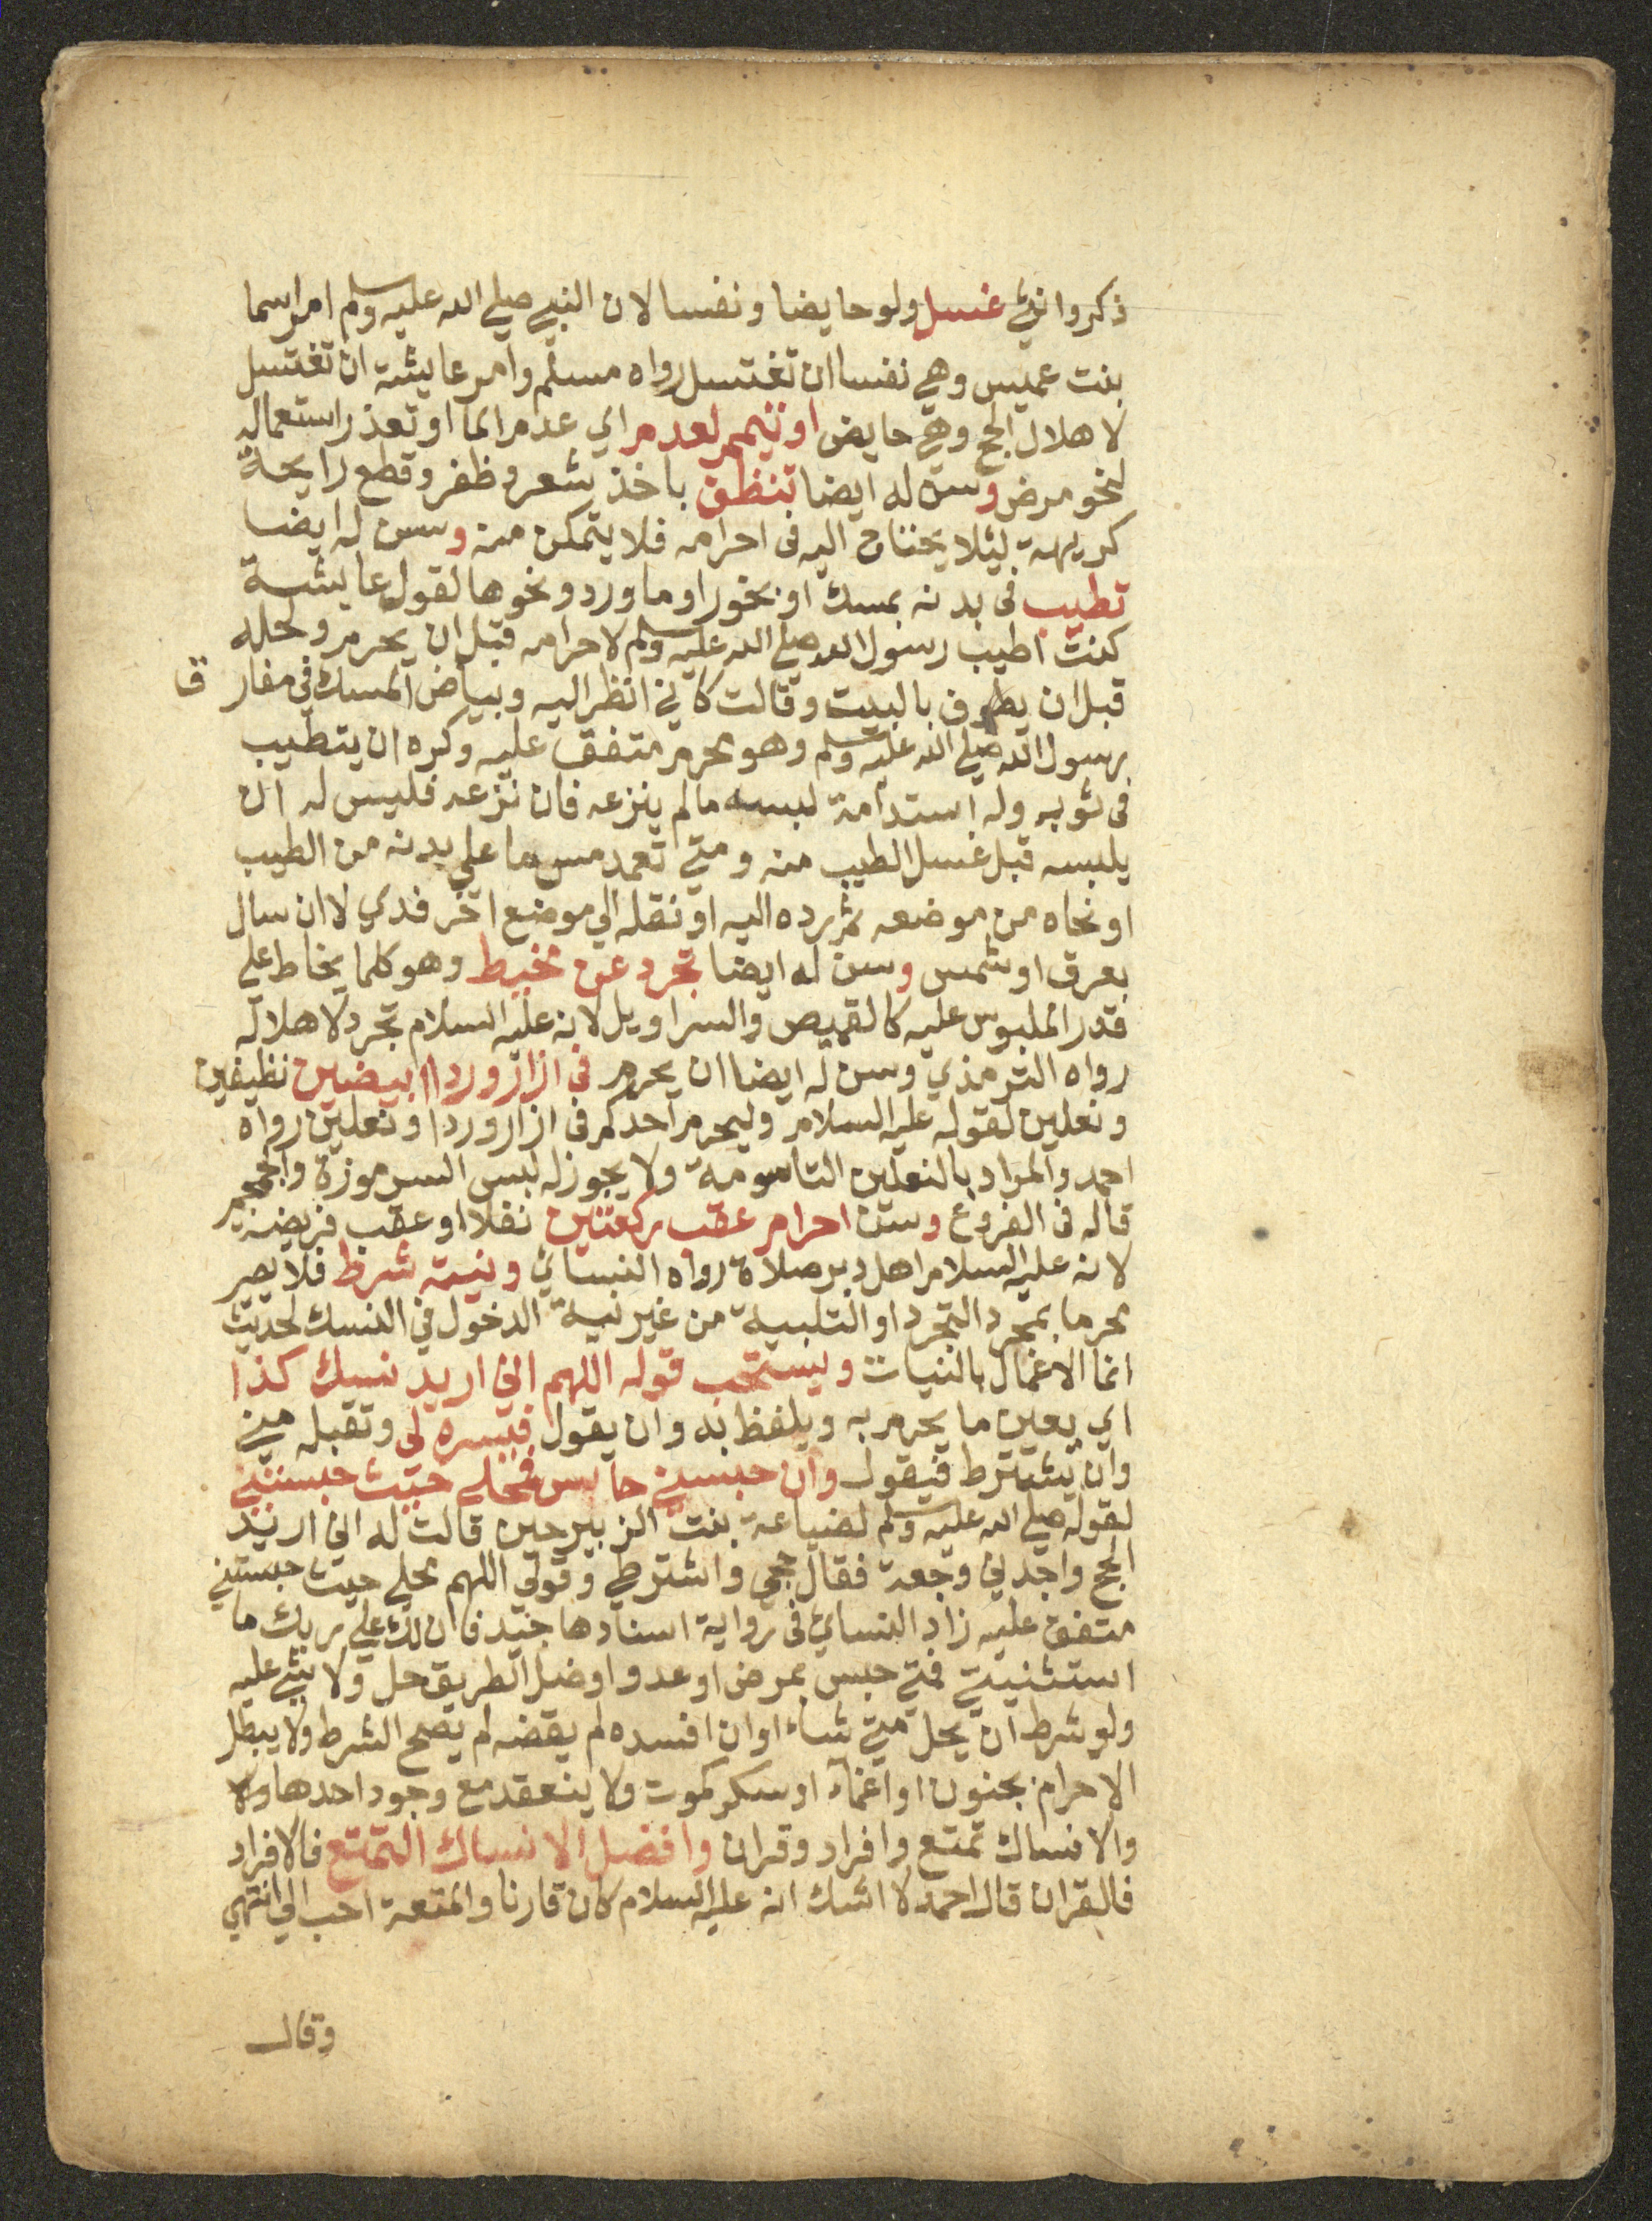 ذكر وانثي غسل ولو حايضا ونفسا لان النبي صلي الله عليه وسلم امر اسما
بنت عميس وهي نفسا ان تغتسل رواه مسلم وامر عايشة ان تغتسل
لاهلال الحج وهي حايض او تيمم لعدم اي عدم الما او تعذر استعماله
لنحو مرض وسن له ايضا تنظف باخذ شعر وظفر وقطع رايحة
كريهة ليلا يحتاج اليه في احرامه فلا يتمكن منه وسن له ايضا
تطيب في بدنه بمسك او بخور او ماورد ونحوها لقول عايشة
كنت اطيب رسول الله صلي الله عليه وسلم لاحرامه قبل ان يحرم ولحله
قبل ان يطوف بالبيت وقالت كاني انظر اليه وبياض المسك في مفارق
رسول الله صلي الله عليه وسلم وهو محرم متفق عليه وكره ان يتطيب
في ثوبه وله استدامة لبسه مالم ينزعه فان نزعه فليس له ان
يلبسه قبل غسل الطيب منه ومتي تعمد مس ما علي بدنه من الطيب
او نحاه من موضعه ثم رده اليه او نقله الي موضع اخر فدي لا ان سال
بعرق او شمس وسن له ايضا تجرد عن مخيط وهو كلما يخاط علي
قدر الملبوس عليه كالقميص والسراويل لانه عليه السلام تجرد لاهلاله
رواه الترمذي وسن له ايضا ان يحرم في ازار وردا ابيضين نظيفين
ونعلين لقوله عليه السلام وليحرم احدكم في ازار وردا ونعلين رواه
احمد والمراد بالنعلين التاسومة ولا يجوز له لبس السرموزة والجمجم
قاله في الفروع وسن احرام عقب ركعتين نفلا او عقب فريضة
لانه عليه السلام اهل دبر صلاة رواه النسائي ونيته شرط فلا يصير
محرما بمجرد التجرد او التلبية من غير نية الدخول في النسك لحديث
انما الاعمال بالنيات ويستحب قوله اللهم اني اريد نسك كذا
اي يعين ما يحرم به ويلفظ به وان يقول فيسره لي وتقبله مني
وان يشترط فيقول وان حبسني حابس فمحلي حيث حبستني
لقوله صلي الله عليه وسلم لضباعة بنت الزبير حين قالت له اني اريد
الحج واجدني وجعة فقال حجي واشترطي وقولي اللهم محلي حيث حبستني
متفق عليه زاد النسائي في رواية اسنادها جيد فان لك علي ربك ما
استثنيتي فمتي حبس بمرض او عدو او ضل الطريق حل ولا شي عليه
ولو شرط ان يحل متي شاء او ان افسده لم يقضه لم يصح الشرط ولا يبطل
الاحرام بجنون او اغماء او سكر كموت ولا ينعقد مع وجود احدها
والانساك تمتع وافراد وقران وافضل الانساك التمتع فالافراد
فالقران قال احمد لا اشك انه عليه السلام كان قارنا والمتعة احب الي انتهي
وقال